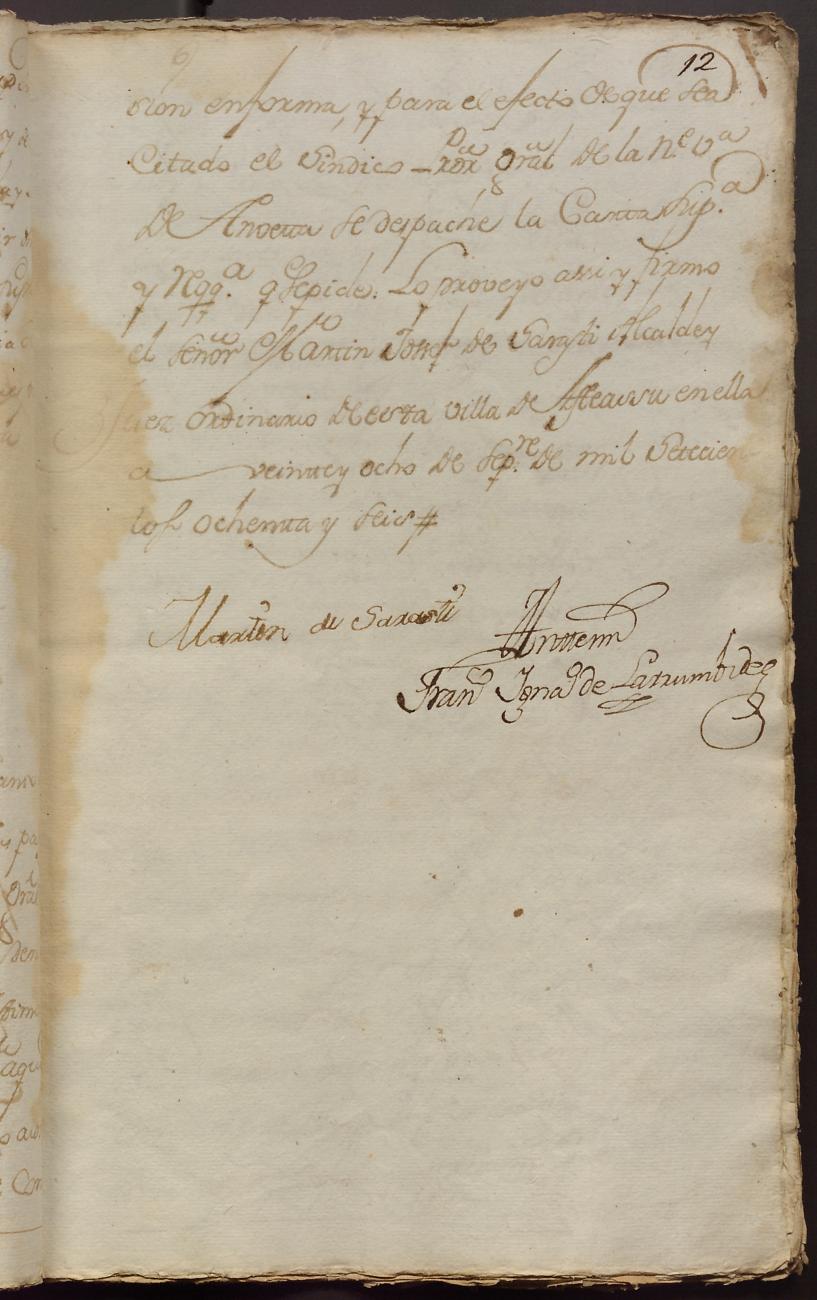 12
cion enforma, y para el efecto de que sea
Citado el Sindico Pror Gral de la N.e V.a
De Anoetta se despache la Carta sup.a
y Reqq.a q se pide. Lo proveyo assi y firmo
el señor Martin Joseph de Sarasti Alcalde y
Juez ordinario de esta villa de Asteassu en ella
a veinte y ocho de Sep.re de mil Setecien
tos ochenta y seis #
Martin de Sarasti
Anttemi
Fran.co Ign.o de Larrumbide